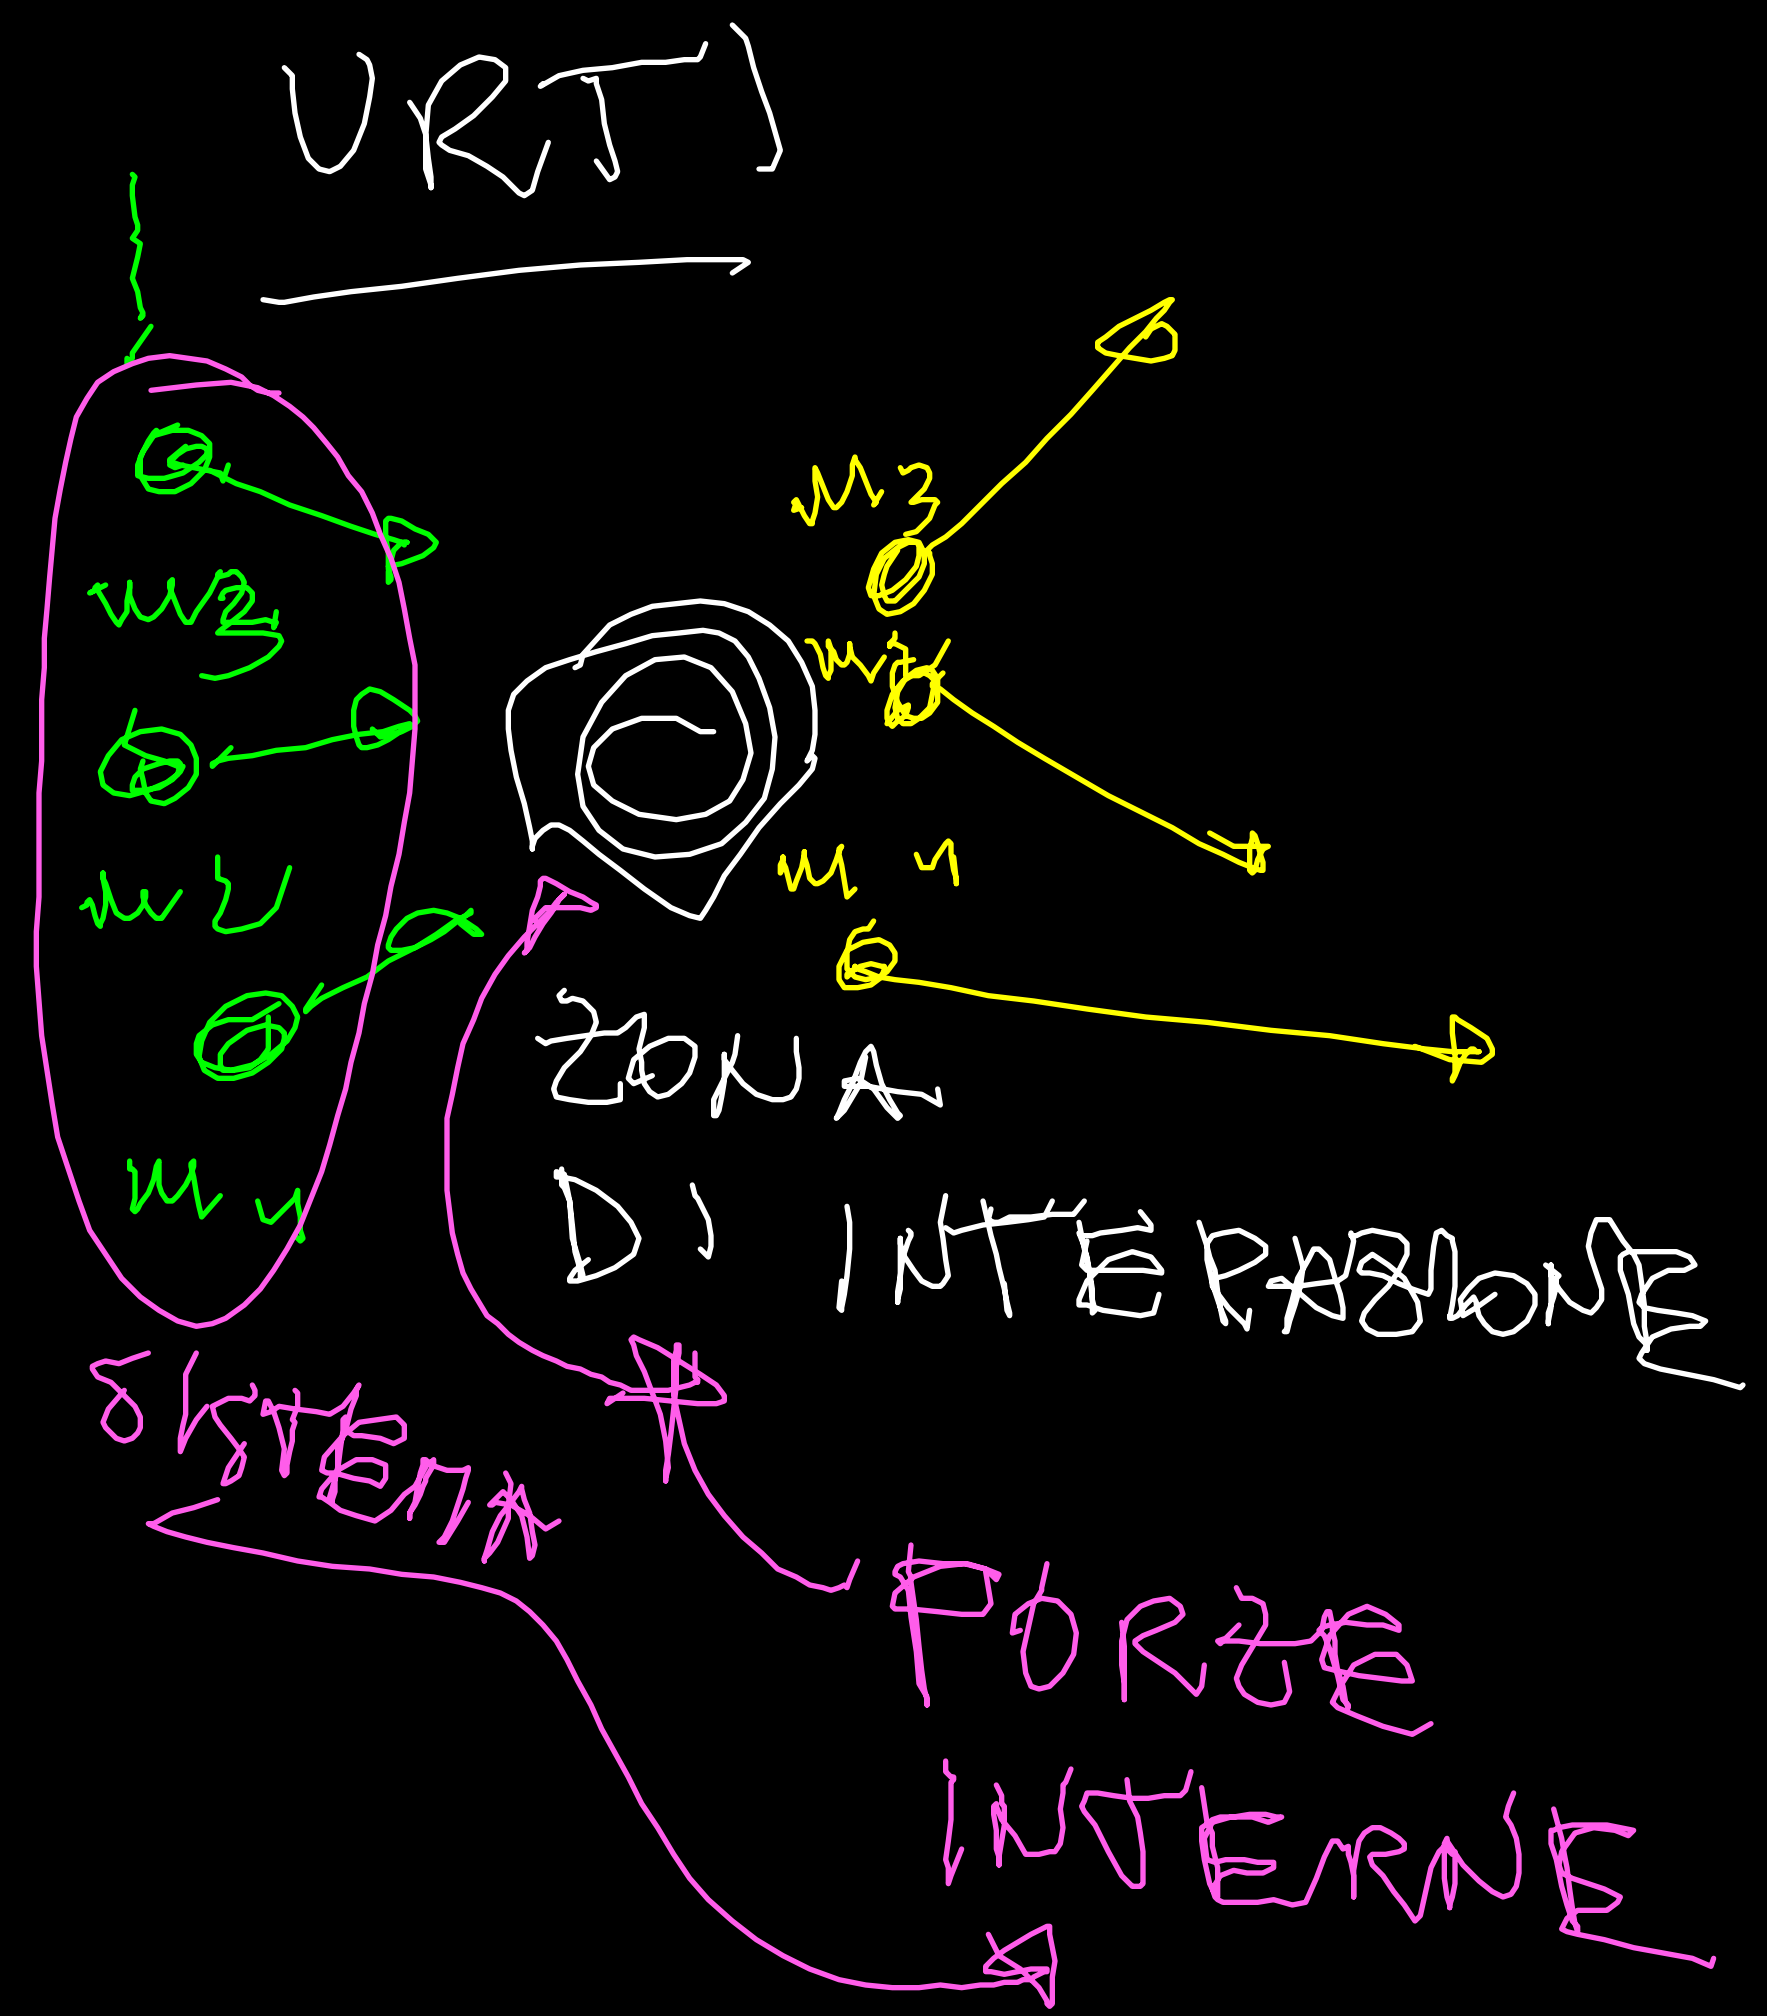 URTI
m3
m2
m1
m3
m2
m1
ZONA
DI INTERAZIONE
SISTEMA
FORZE
INTERNE